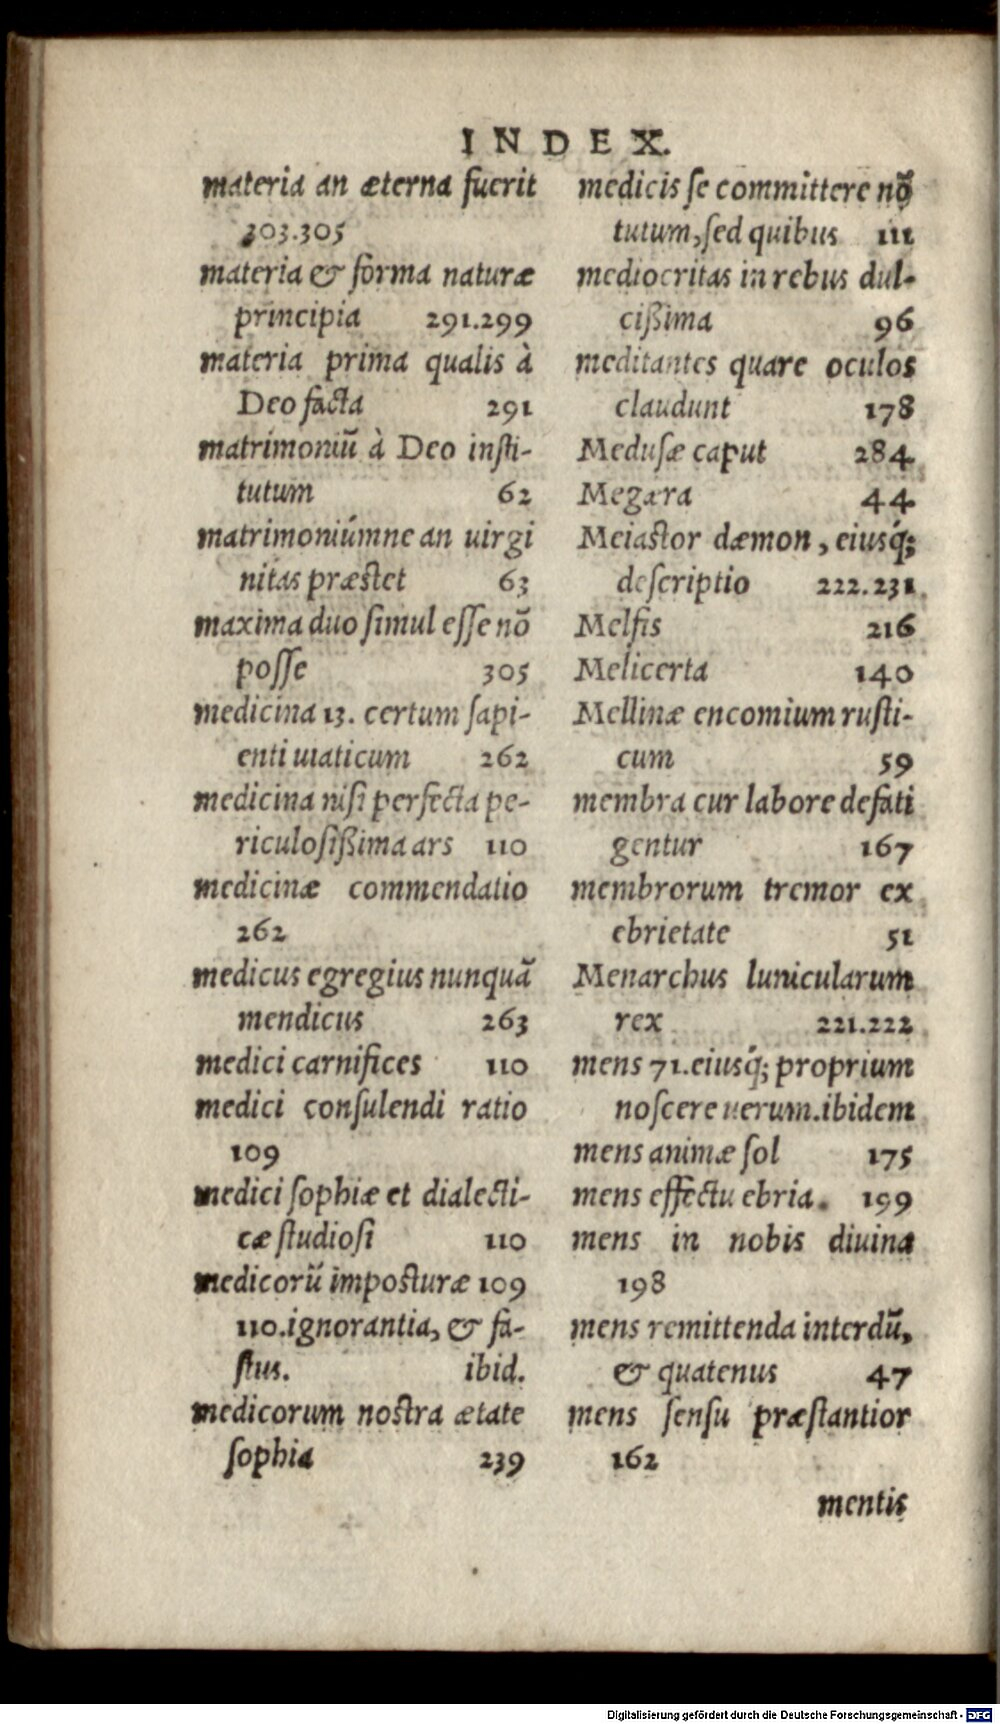 INDEX.
materia an æterna fuerit
303.305
materia & forma naturæ
principia 291.299
materia prima qualis à
Deo facta 291
matrimoniũ à Deo insti-
tutum 62
matrimoniúmne an uirgi
nitas præstet 63
maxima duo simul esse nõ
posse 305
medicina 13. certum sapi-
enti uiaticum 262
medicina nisi perfecta pe-
riculosißima ars 110
medicinæ commendatio
262
medicus egregius nunquã
mendicus 263
medici carnifices 110
medici consulendi ratio
109
medici sophiæ et dialecti-
cæ studiosi 110
medicorũ imposturæ 109
110.ignorantia, & fa-
stus. ibid.
medicorum nostra ætate
sophia 239
medicis se committere nõ
tutum, sed quibus 111
mediocritas in rebus dul-
cißima 96
meditantes quare oculos
claudunt 178
Medusæ caput 284
Megæra 44
Meiastor dæmon, eiusq́;
descriptio 222.231
Melfis 216
Melicerta 140
Mellinæ encomium rusti-
cum 59
membra cur labore defati
gentur 167
membrorum tremor ex
ebrietate 51
Menarchus lunicularum
rex 221.222
mens 71.eiusq́; proprium
noscere uerum.ibidem
mens animæ sol 175
mens effectu ebria. 199
mens in nobis diuina
198
mens remittenda interdũ,
& quatenus 47
mens sensu præstantior
162
mentis
Digitalisierung gefördert durch die Deutsche Forschungsgemeinschaft - DFG